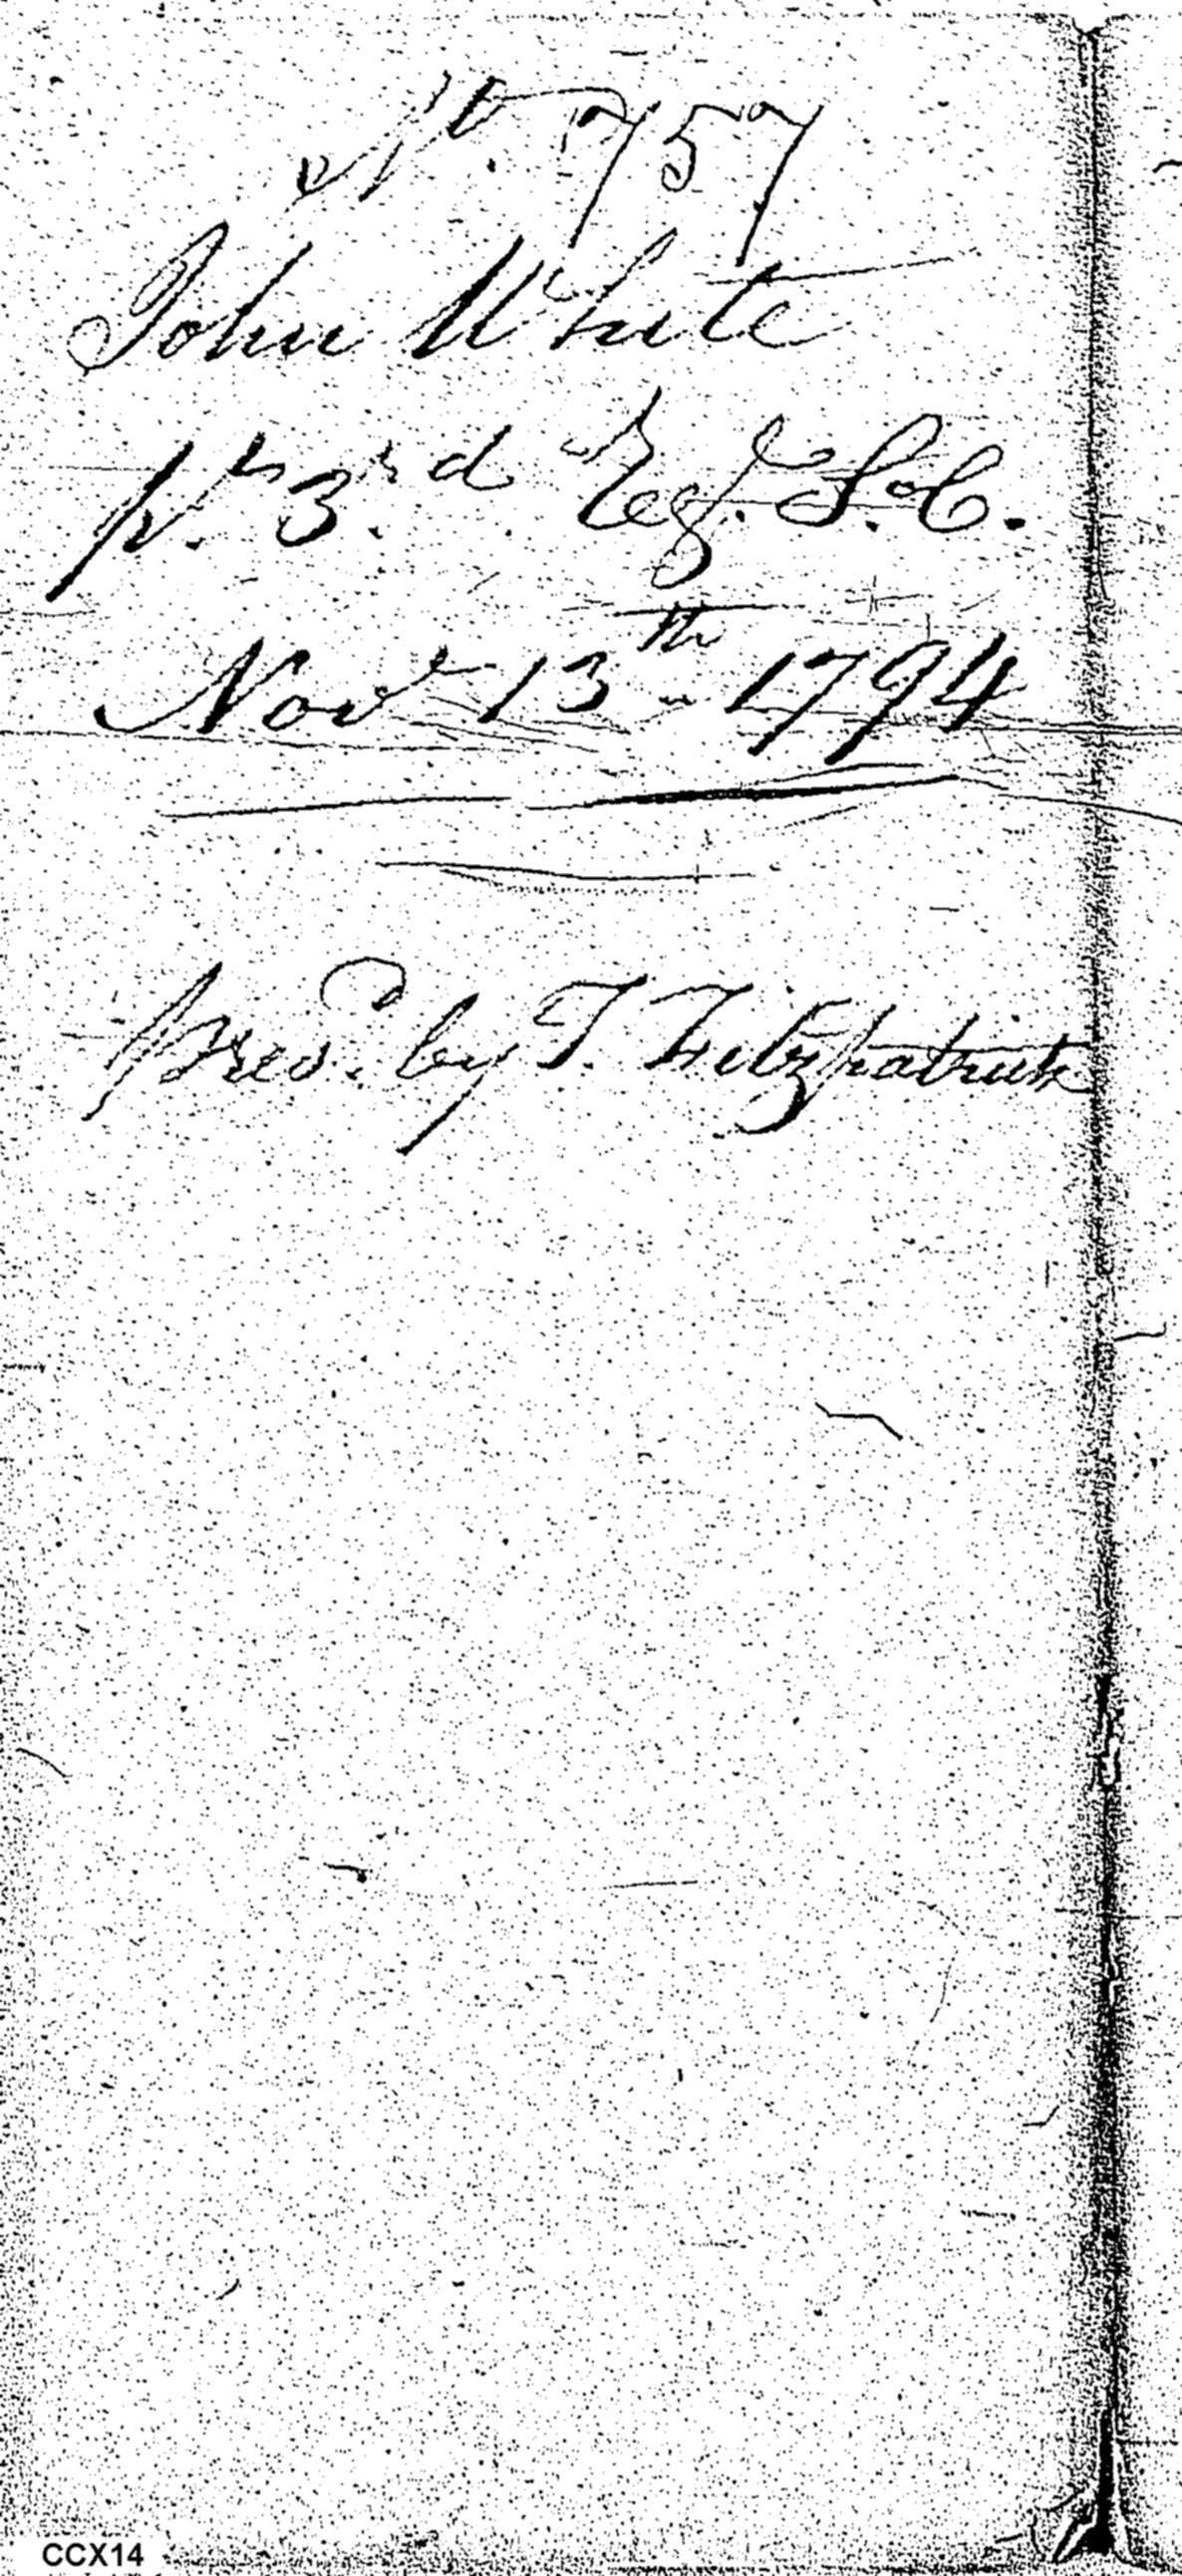 No. 757
John White
pr. 3rd Reg. S.C.
Novr 13th 1794
by T. Fitzpatrick
CCX14